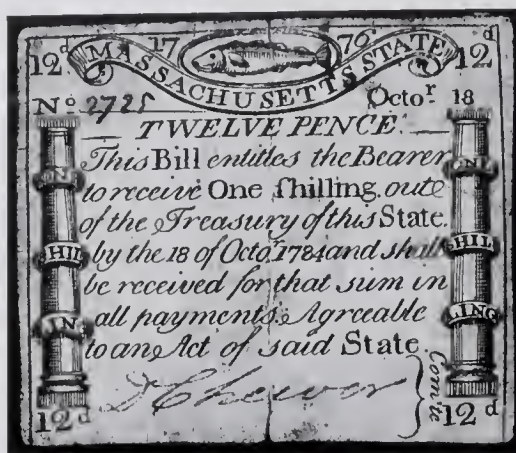 12d 17 76 12d
MASSACHUSETTS STATE
No 2725 Octor. 18
TWELVE PENCE.
This Bill entitles the Bearer
to receive One ſhilling oute
of the Treasury of this State.
by the 18 of Octor. 1784 and shall
be received for that sum in
all payments Agreeable
to an Act of said State.
ON
E
SHIL
LING
HIL
LING
Comte
12d 12d